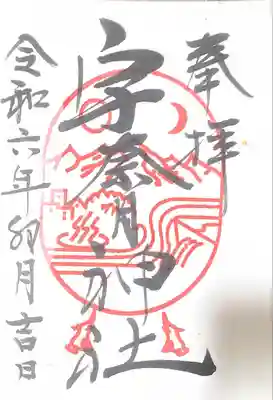 奉拝
宇奈月神社
令和六年卯月吉日